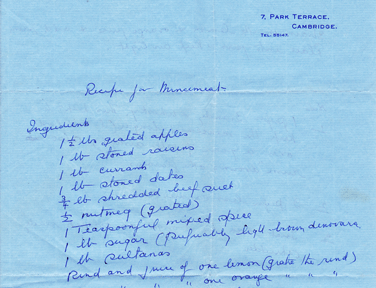 7, PARK TERRACE,
CAMBRIDGE.
TEL. 55147.
Recipe for Mincemeat
Ingredients
1 1/2 lbs grated apples
1 lb stoned raisins
1 lb currants
1 lb stoned dates
3/4 lb shredded beef suet
1/2 nutmeg (grated)
1 Teaspoonful mixed spice
1 lb sugar (preferably light brown demerara
1 lb sultanas
Rind and juice of one lemon (grate the rind)
" " " " one orange " " "